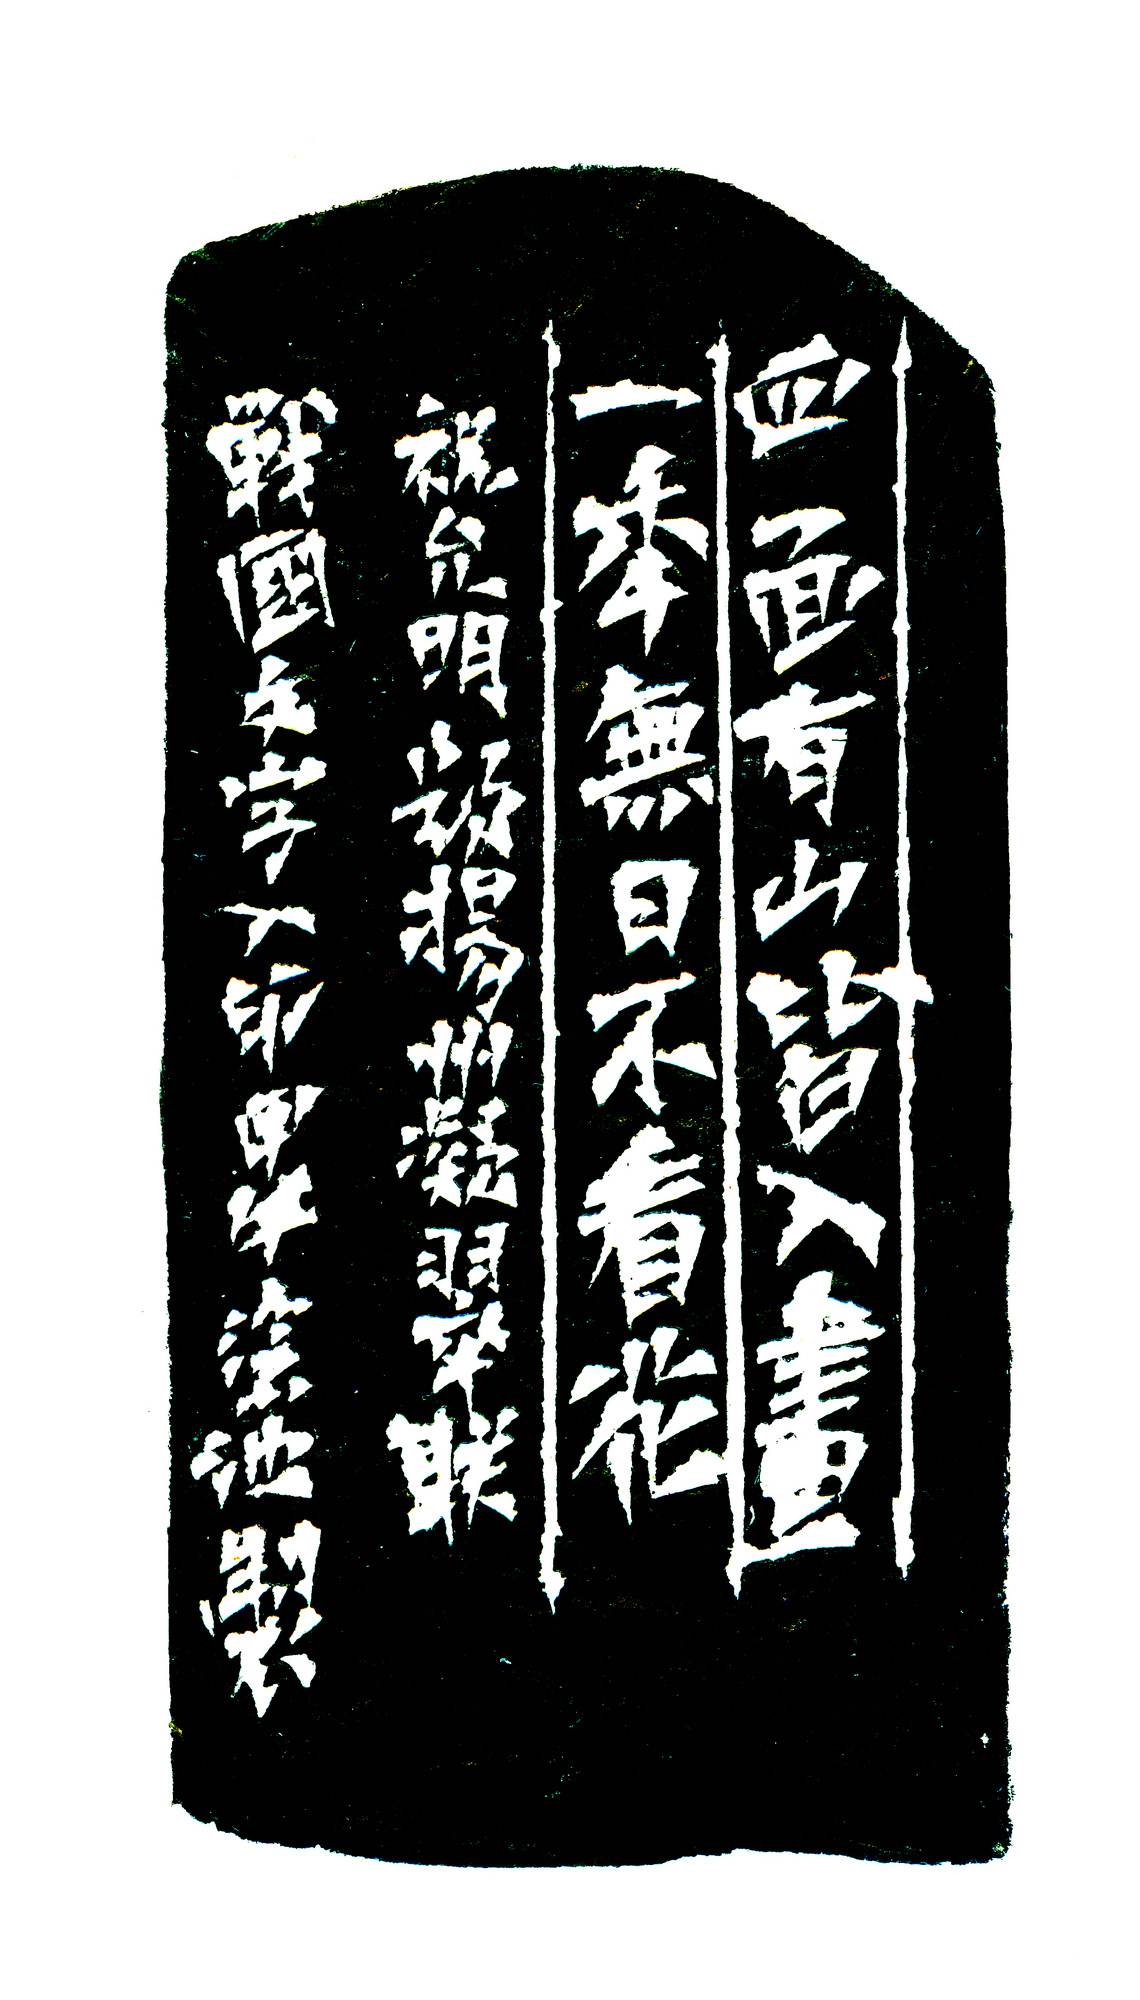 四面有山皆入畫
一年無日不看花
祝允明題揚州凝翠联
戰國文字入印甲午池製